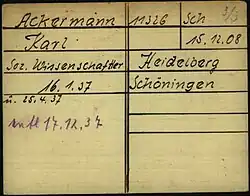 Ackermann 11326 Sch 3/5
Karl 15.12.08
Soz. Wissenschaftler Heidelberg
16.1.37 Schöningen
u. 25.4.37
entl 17.12.37